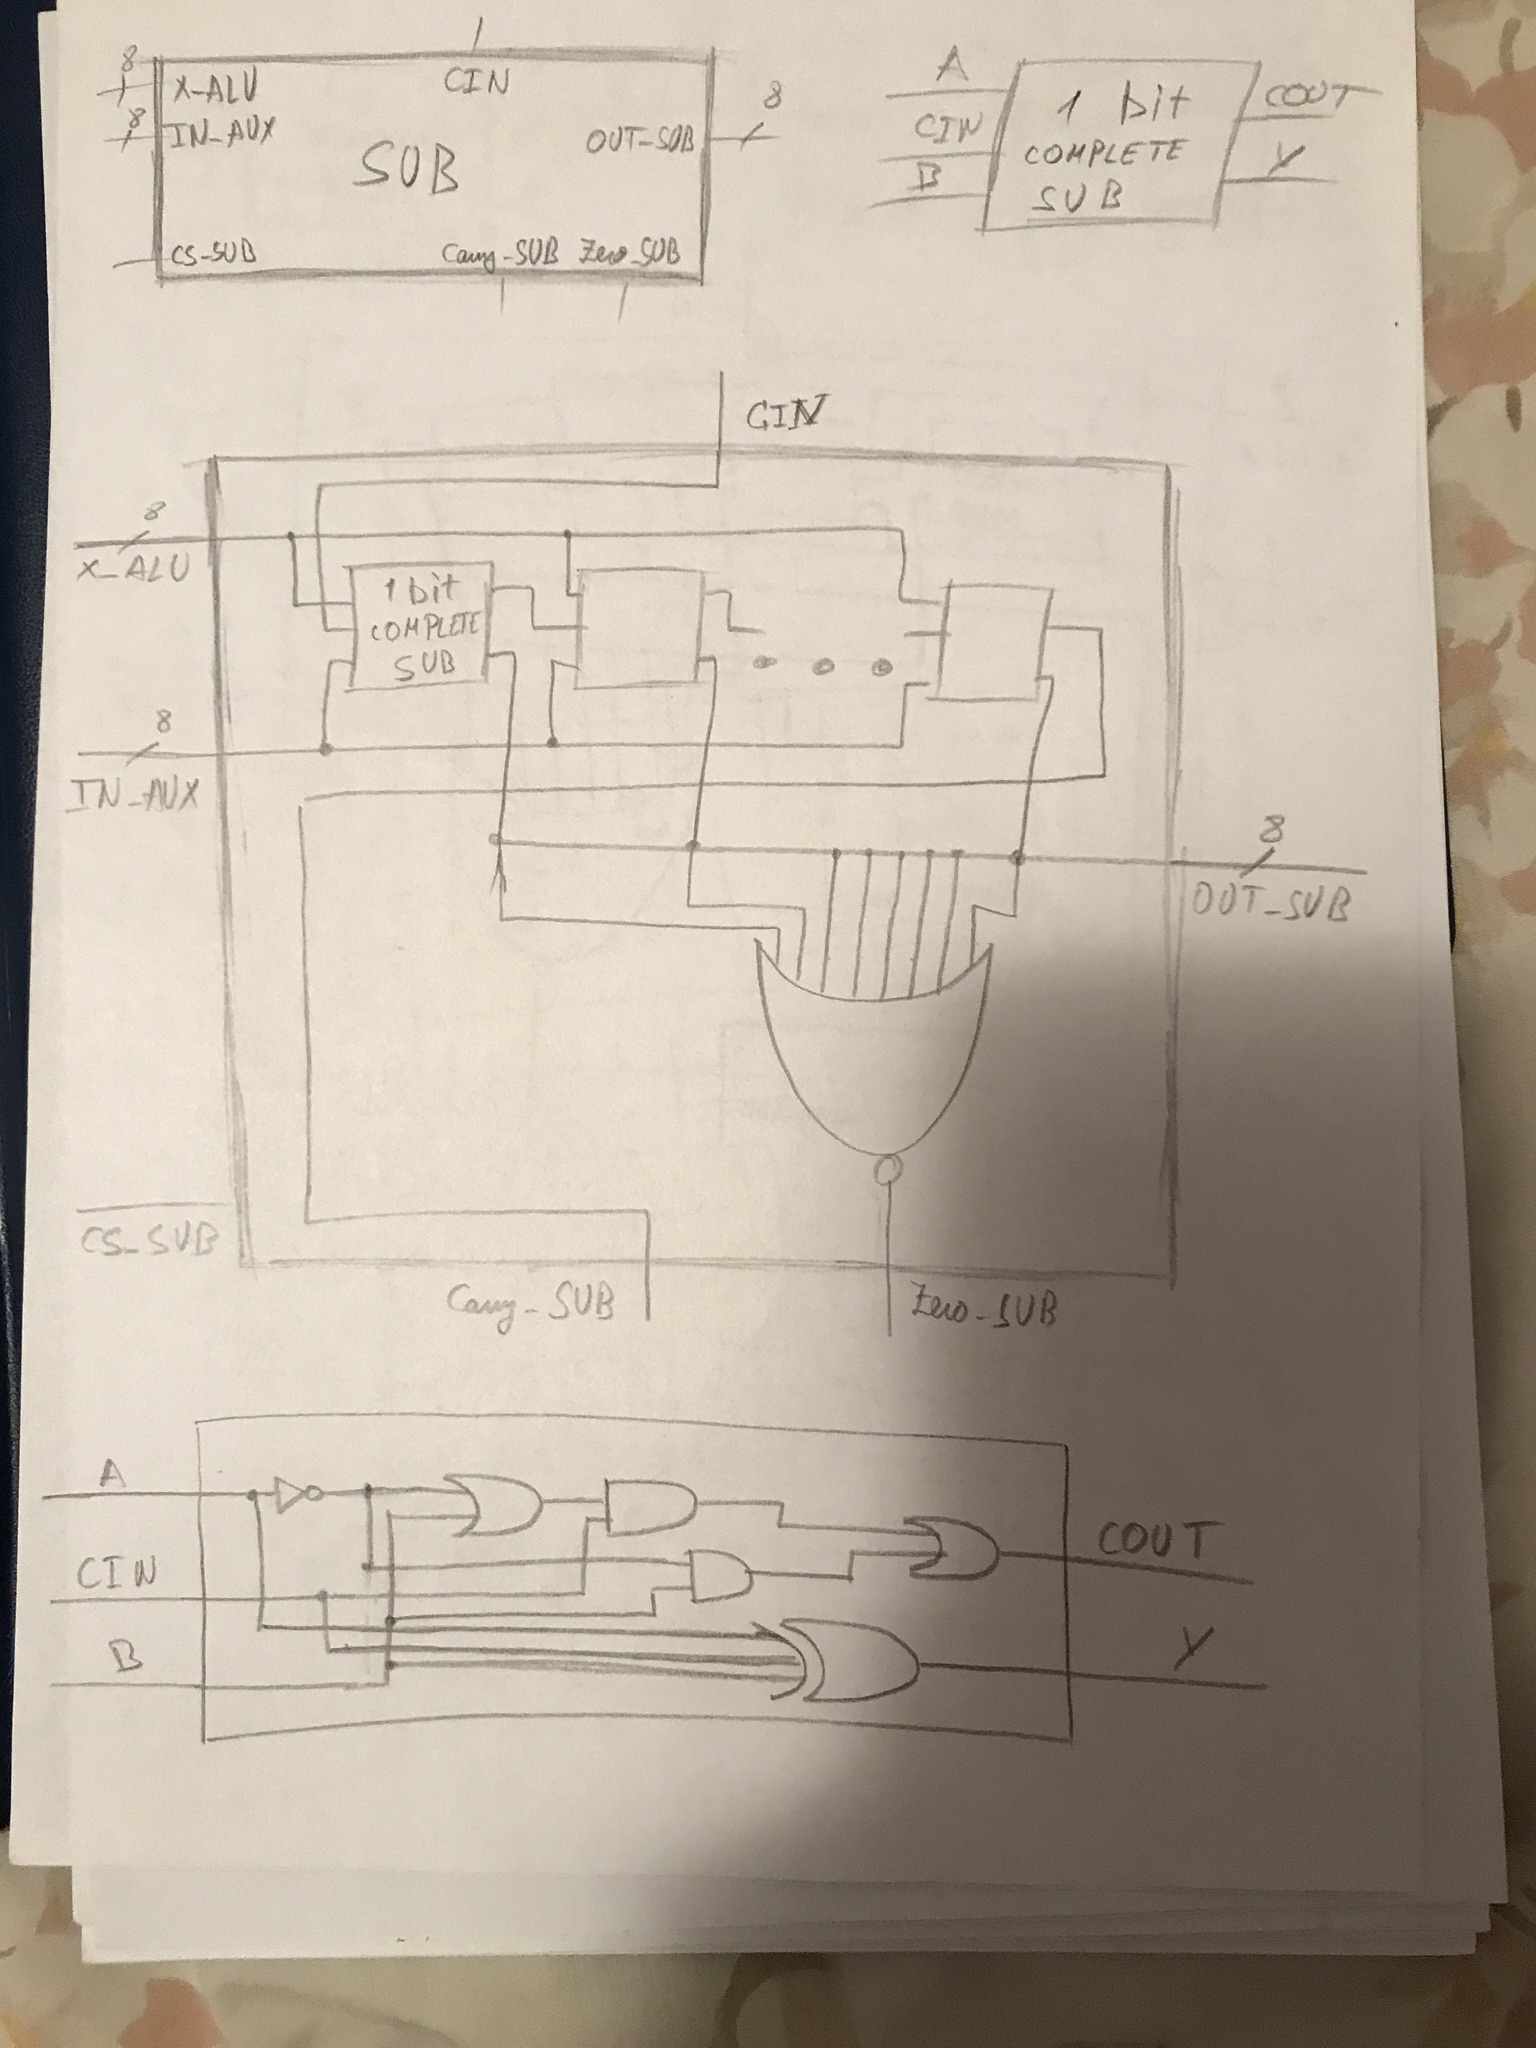 8
X-ALU
8
IN_AUX
CIN
SUB
OUT-SUB
8
CS-SUB
Carry-SUB
Zero_SUB
A
CIN
B
1 bit
COMPLETE
SUB
COUT
Y
CIN
8
X_ALU
1 bit
COMPLETE
SUB
8
IN_AUX
8
OUT_SUB
CS_SUB
Carry-SUB
Zero-SUB
A
CIN
B
COUT
Y